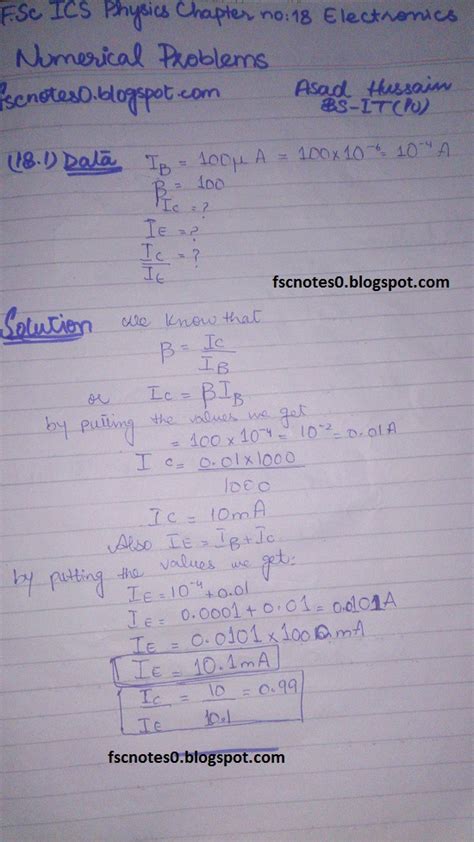 F.Sc ICS Physics Chapter no:18 Electronics
Numerical Problems
fscnotes0.blogspot.com Asad Hussain
BS-IT(PU)
(18.1) Data I_B = 100μA = 100×10⁻⁶ = 10⁻⁴A
β = 100
Ic = ?
IE = ?
Ic/IE = ?
fscnotes0.blogspot.com
Solution we know that
β = Ic/I_B
or Ic = βI_B
by putting the values we get
= 100 × 10⁻⁴ = 10⁻² = 0.01A
Ic = 0.01×1000
1000
Ic = 10mA
Also IE = I_B + Ic
by putting the values we get:
IE = 10⁻⁴ + 0.01
IE = 0.0001 + 0.01 = 0.0101A
IE = 0.0101 × 1000 mA
IE = 10.1mA
Ic/IE = 10/10.1 = 0.99
fscnotes0.blogspot.com